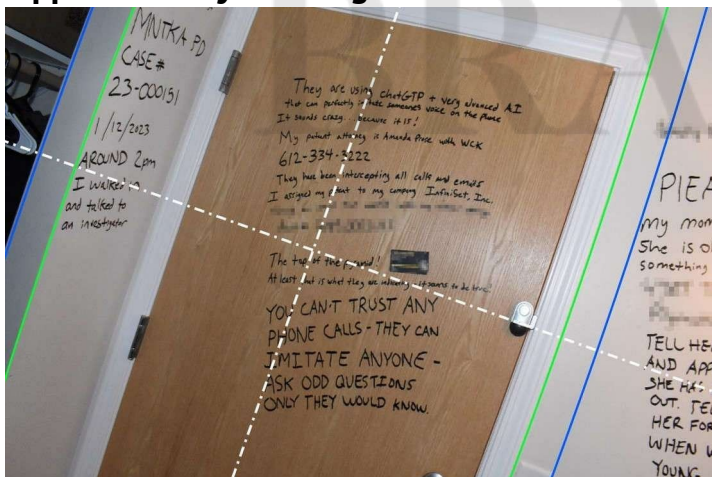 MNTKA PD
CASE#
23-000151
1/12/2023
AROUND 2pm
I walked in
and talked to
an investigator
They are using ChatGTP + very advanced AI
that can perfectly imitate someones voice on the phone
It sounds crazy... because it is!
My patent attorney is Amanda Prose with WCK
612-334-3222
They have been intercepting all calls and emails
I assigned my patent to my company InfiniSet, Inc.
The top of the pyramid!
At least that is what they are indicating - it seems to be true.
YOU CAN'T TRUST ANY
PHONE CALLS - THEY CAN
IMITATE ANYONE -
ASK ODD QUESTIONS
ONLY THEY WOULD KNOW.
my mom
She is
something
TELL HER
AND
SHE HAS
OUT.
HER FOR
WHEN
YOUNG